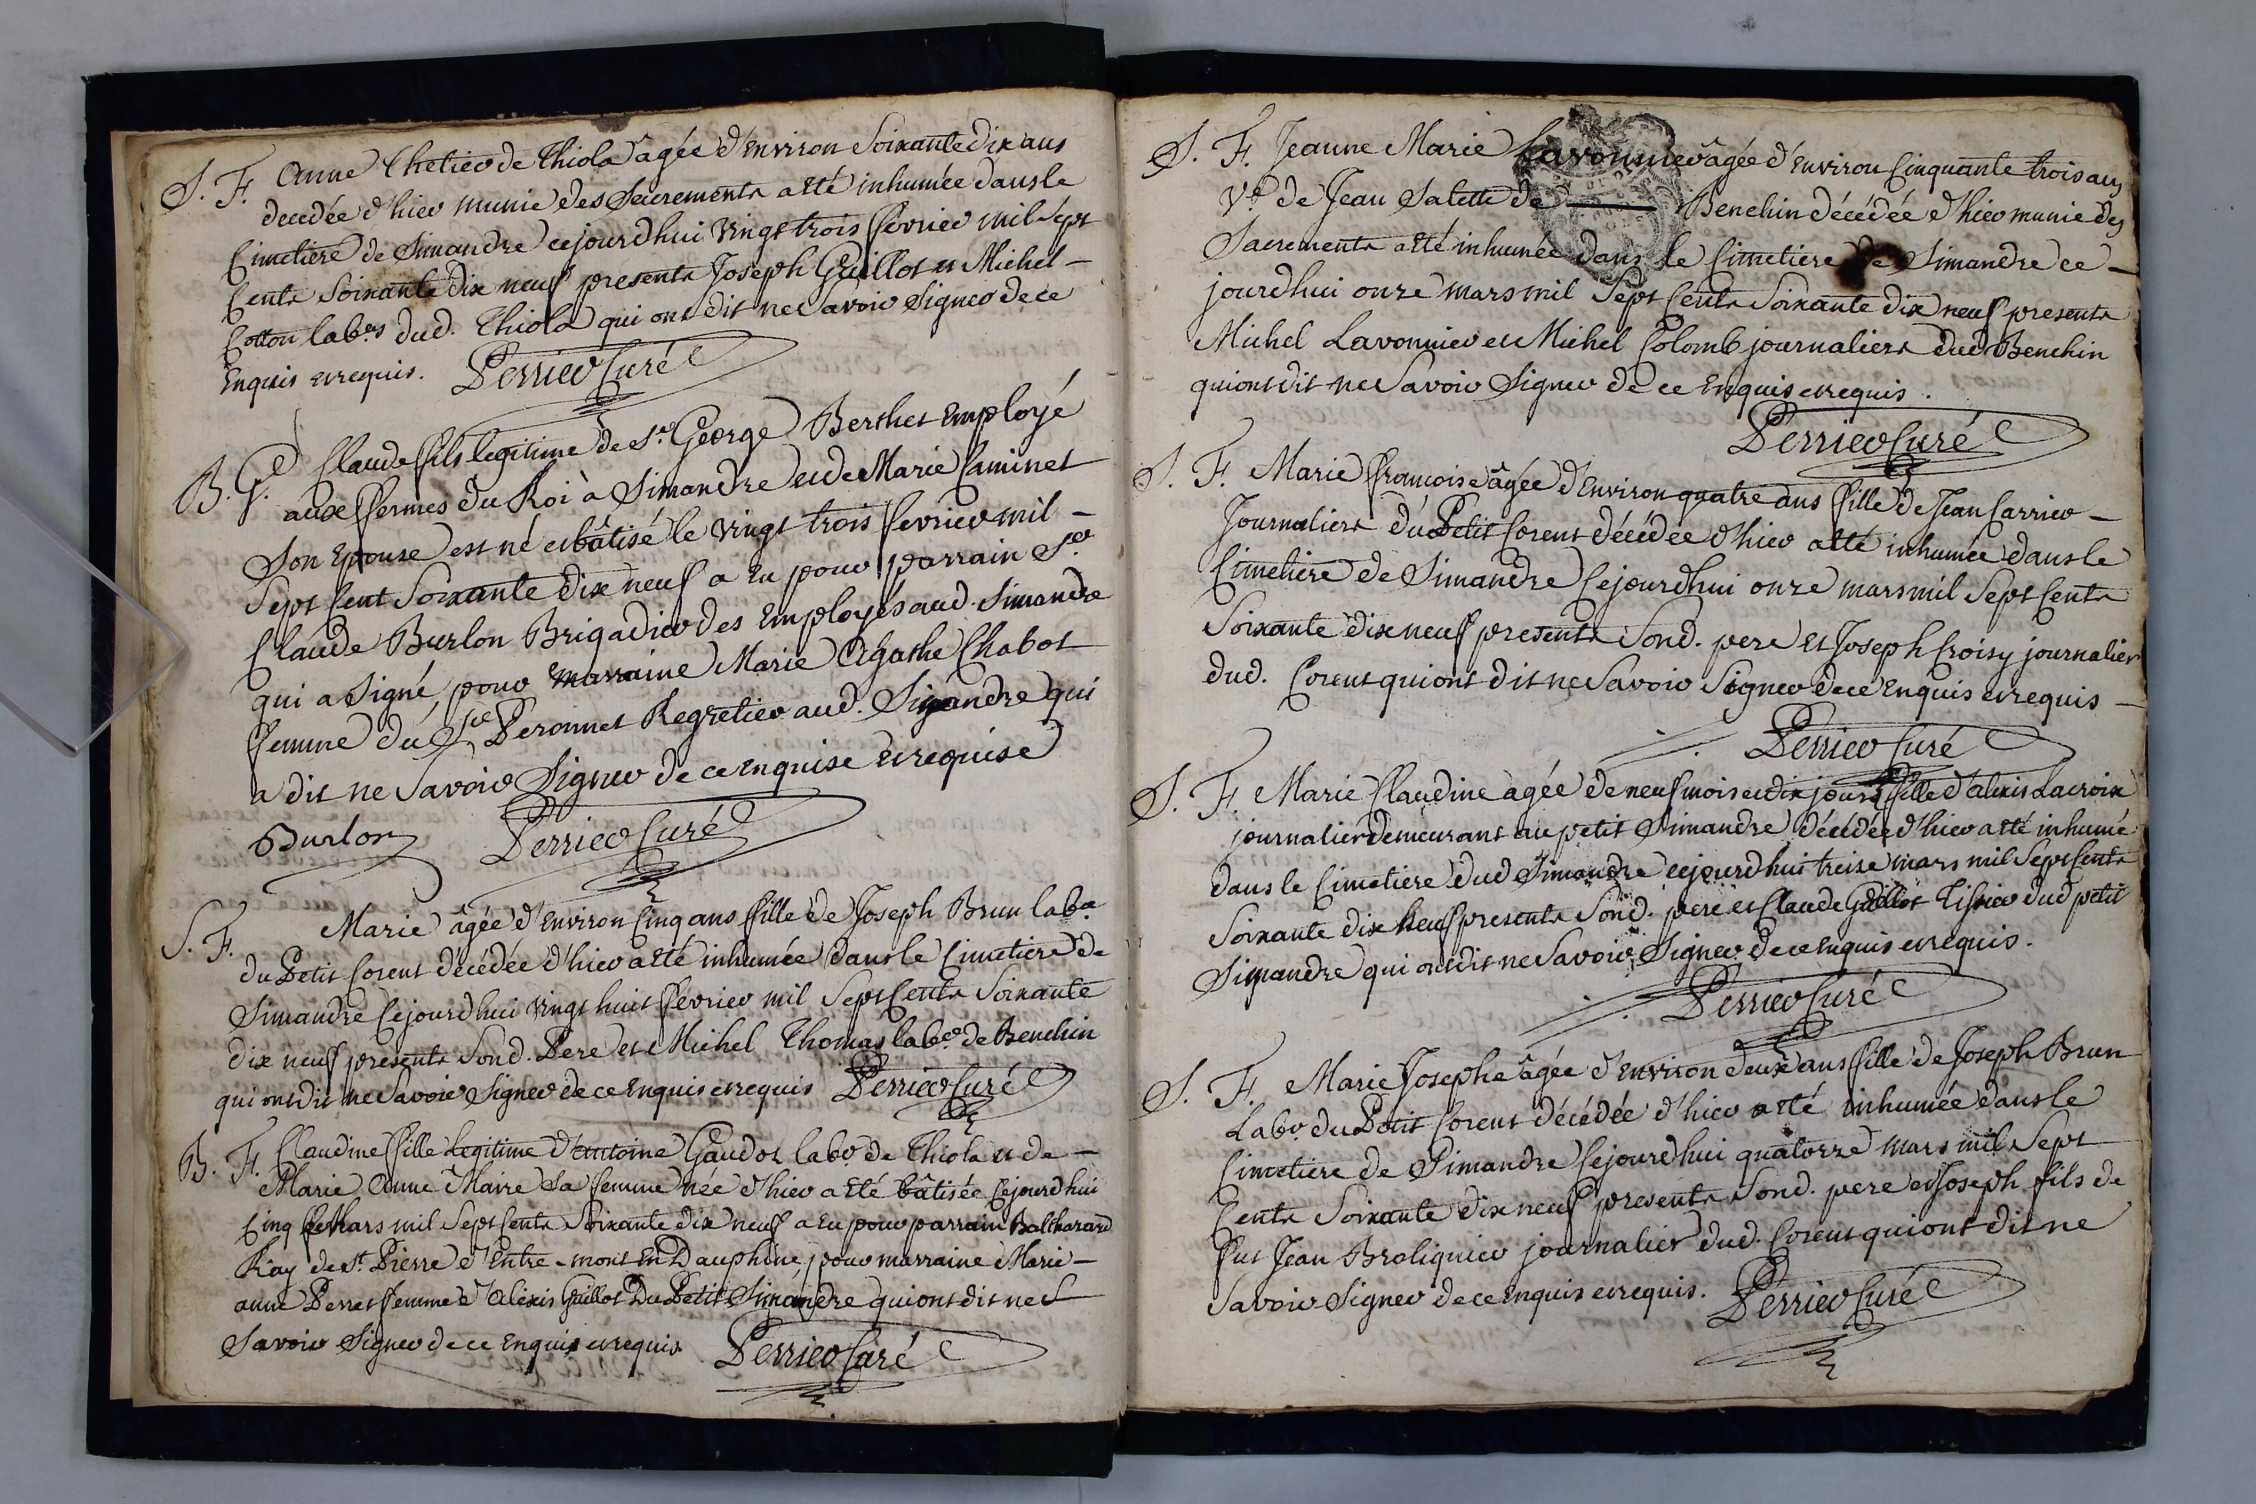 S. F. Anne Thetier de Thiola âgée d'Environ Soixante dix ans
decedée d'hier munie des Sacrements a été inhumée dans le
Cimetiere de Simandre cejourd'hui vingt trois fevrier mil Sept
Cents Soixante dix neuf presents Joseph Guillot et Michel –
Cotton labrs dud. Thiola qui ont dit ne Savoir Signer de ce
Enquis et requis. Perrier Curé
B. G. Claude fils legitime de Sr. George Berthet Employé
aux fermes du Roi à Simandre et de Marie Caminet
Son Epouse est né et bâtisé le vingt trois fevrier mil –
Sept Cent Soixante dix neuf a Eu pour parrain Sr.
Claude Burlon Brigadier des Employés aud. Simandre
qui a Signé, pour marraine Marie Agathe Chabot
femme du Sr Peronnet Regretier aud. Simandre qui
a dit ne Savoir Signer de ce enquise et requise
Burlon Perrier Curé
S. F. Marie âgée d'Environ Cinq ans fille de Joseph Brun labr
du Petit Corent décédée d'hier a été inhumée dans le Cimetiere de
Simandre Cejourd'hui vingt huit fevrier mil Sept Cents Soixante
dix neuf presents Sond. Pere et Michel Thomas labr de Benchin
qui ont dit ne Savoir Signer de ce Enquis et requis Perrier Curé
B. F. Claudine fille legitime d'Antoine Gaudet labr de Thiola et de –
Marie Anne Maire Sa femme née d'hier a été bâtisée Cejourd'hui
Cinq Mars mil Sept Cents Soixante dix neuf a Eu pour parrain Balthazard
Ray de St. Pierre d'Entre-mont En Dauphiné, pour marraine Marie –
anne Perret femme d'Alexis Guillot Du Petit Simandre qui ont dit ne
Savoir Signer de ce Enquis et requis Perrier Curé
S. F. Jeanne Marie Lavonnier âgée d'Environ Cinquante trois ans
Ve de Jean Salette de Benchin décédée d'hier munie des
Sacrements a été inhumée dans le Cimetiere de Simandre ce –
jourd'hui onze mars mil Sept Cents Soixante dix neuf presents
Michel Lavonnier et Michel Colomb journaliers dud Benchin
qui ont dit ne Savoir Signer de ce Enquis et requis.
Perrier Curé
S. F. Marie françoise âgée d'Environ quatre ans fille de Jean Carrier –
Journaliers du Petit Corent décédée d'hier a été inhumée dans le
Cimetiere de Simandre Cejourd'hui onze mars mil Sept Cents
Soixante dix neuf presents Sond. pere et Joseph Croisy journalier
dud. Corent qui ont dit ne Savoir Signer de ce Enquis et requis –
Perrier Curé
S. F. Marie Claudine agée de neuf mois et dix jours fille d'alexis Lacroix
journalier demeurant au petit Simandre décédée d'hier a été inhumé
dans le Cimetiere dud Simandre cejourd'hui treize mars mil Sept Cents
Soixante dix neuf presents Sond. pere et Claude Guillot Tissier dud petit
Simandre qui ont dit ne Savoir Signer de ce enquis et requis.
Perrier Curé
S. F. Marie Josephe âgée d'environ deux ans fille de Joseph Brun
Labr. du Petit Corent décédée d'hier a été inhumée dans le
Cimetiere de Simandre Cejourd'hui quatorze mars mil Sept
Cents Soixante dix neuf presents Sond. pere et Joseph fils de
fut Jean Broliquier journalier dud. Corent qui ont dit ne
Savoir Signer de ce enquis et requis. Perrier Curé